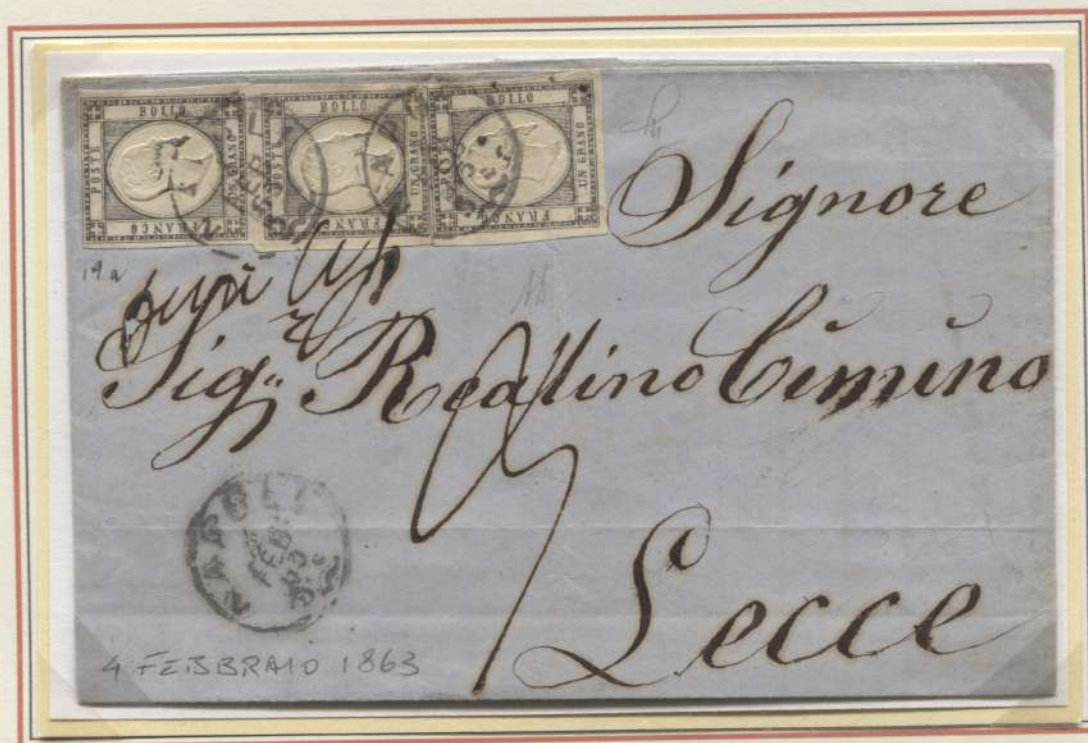 BOLLO
POSTE
UN GRANO
FRANCO
BOLLO
POSTE
UN GRANO
FRANCO
BOLLO
POSTE
UN GRANO
FRANCO
19a
Signore
Sig.r Realino Cimino
NAPOLI
4 FEB.
63
Lecce
4 FEBBRAIO 1863